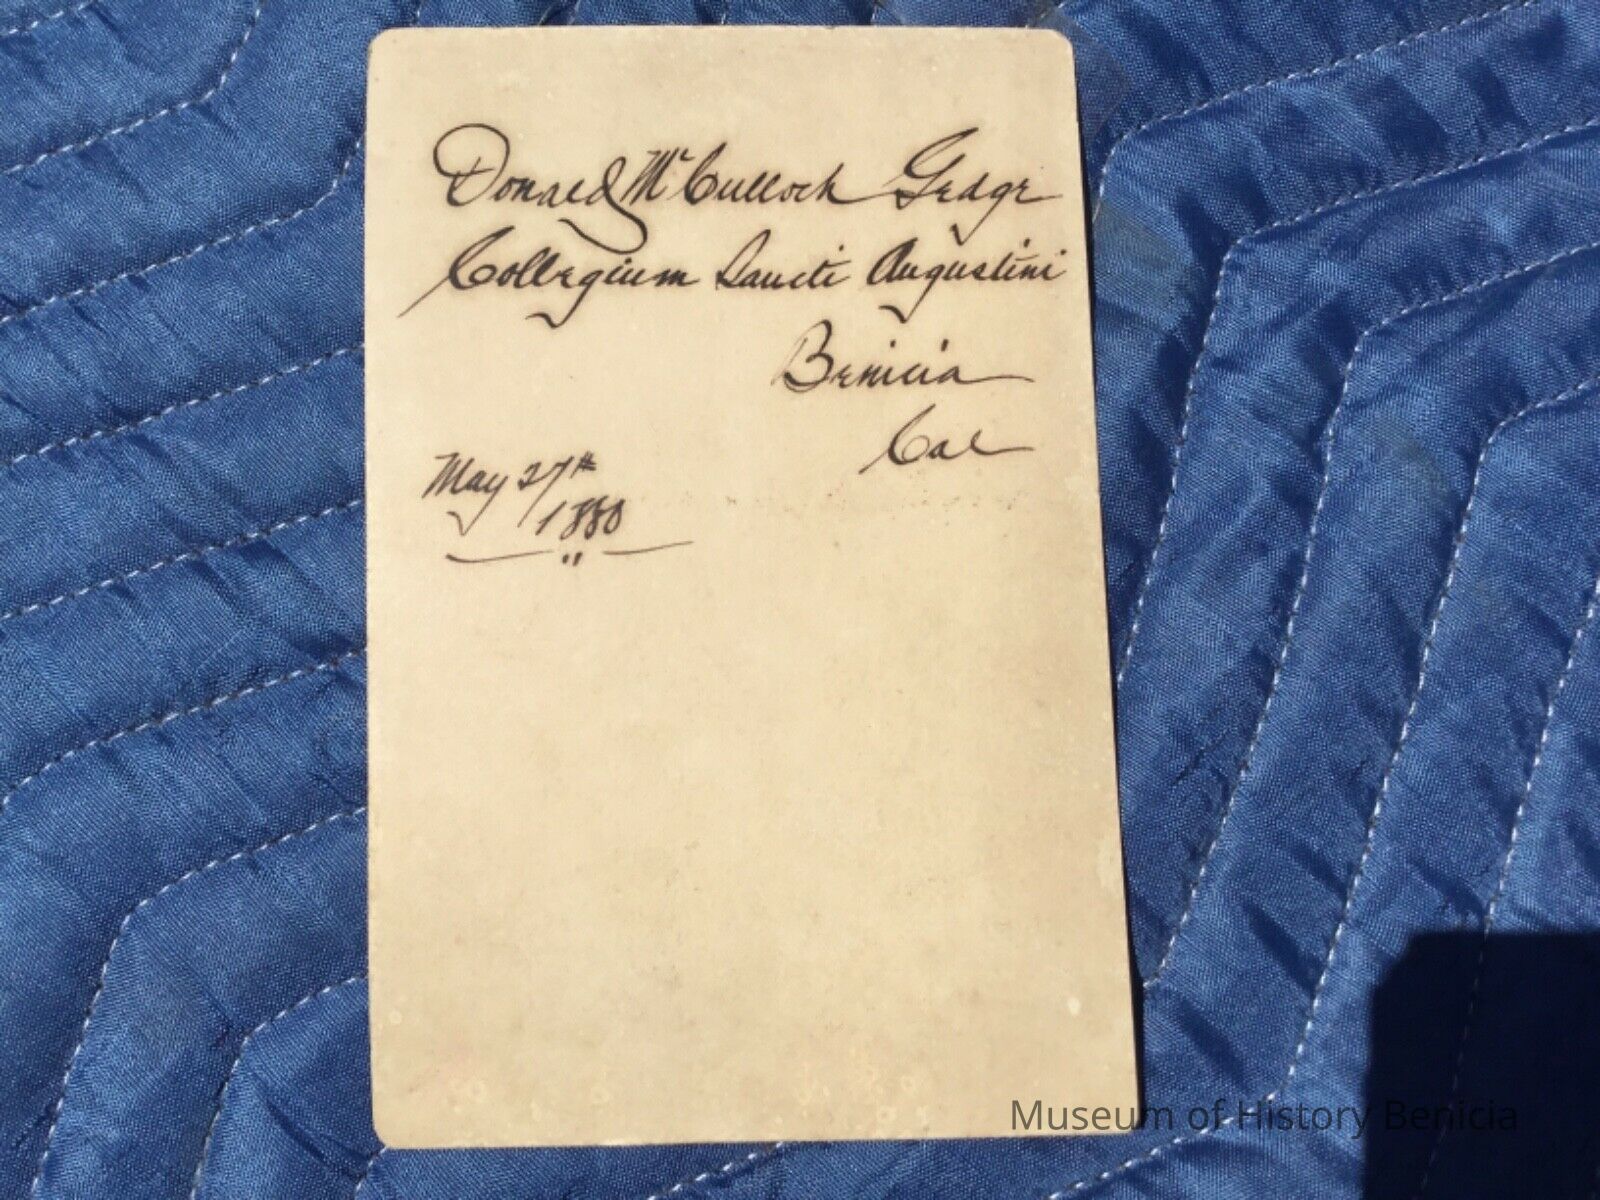 Donald McCulloch Gedge
Collegium Sancti Augustini
Benicia
Cal
May 27th
1880
Museum of History Benicia